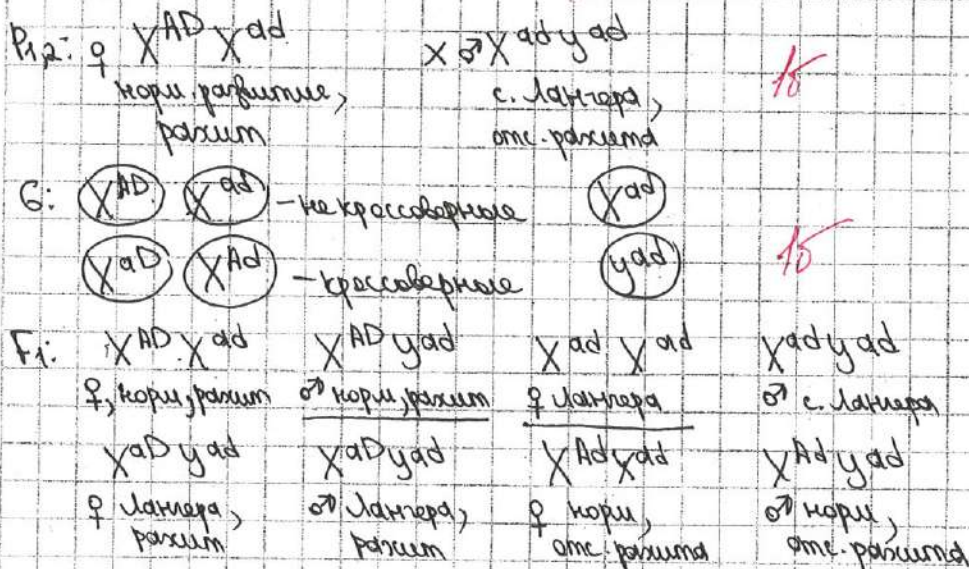 P₁,₂: ♀ X^AD X^ad × ♂ X^ad y^ad 1б
норм. развитие, с. Лангера,
рахит отс. рахита
G: X^AD X^ad – некроссоверные X^ad
X^aD X^Ad – кроссоверные y^ad 1б
F₁: X^AD X^ad X^AD y^ad X^ad X^ad X^ad y^ad
♀, норм, рахит ♂ норм, рахит ♀ Лангера ♂ с. Лангера
X^aD y^ad X^aD y^ad X^Ad X^ad X^Ad y^ad
♀ Лангера, ♂ Лангера, ♀ норм, ♂ норм,
рахит рахит отс. рахита отс. рахита